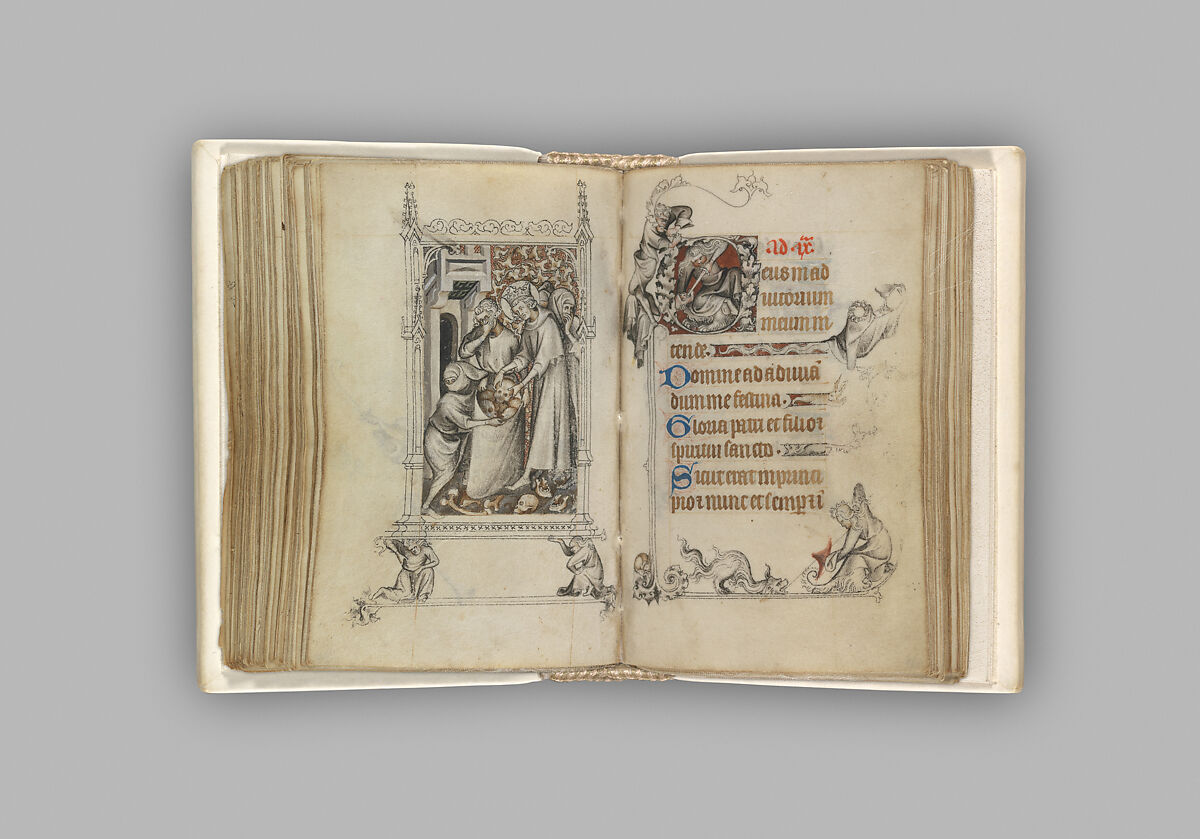 ad ix.
Deus in ad
iutorium
meum in
tende.
Domine ad adiuuā
dum me festina.
Gloria patri et filio ⁊
spiritui sancto.
Sicut erat in princi
pio ⁊ nunc et semp̄ ⁊ ī